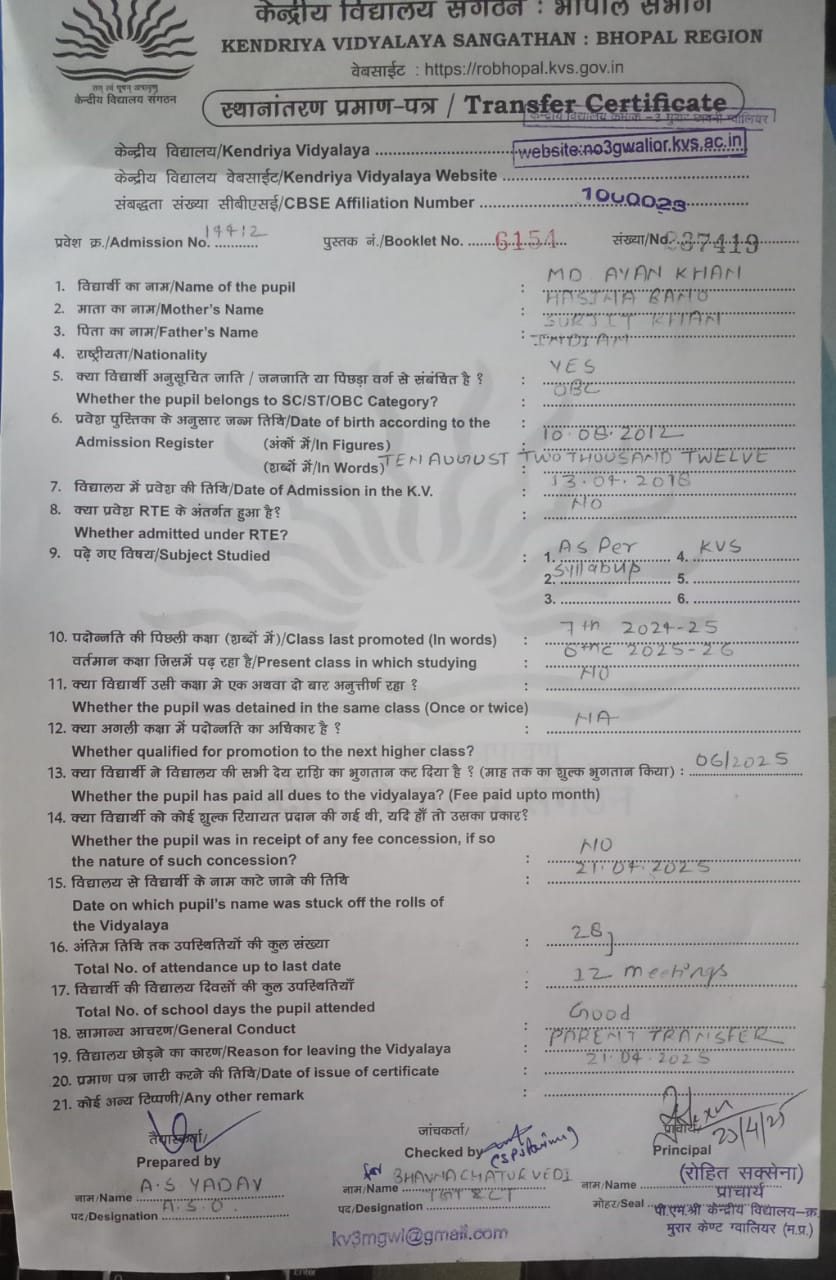 केन्द्रीय विद्यालय संगठन : भोपाल संभाग
KENDRIYA VIDYALAYA SANGATHAN : BHOPAL REGION
वेबसाईट : https://robhopal.kvs.gov.in
केन्द्रीय विद्यालय संगठन
स्थानांतरण प्रमाण-पत्र / Transfer Certificate
केन्द्रीय विद्यालय क्रमांक -3 मुरार छावनी ग्वालियर
केन्द्रीय विद्यालय/Kendriya Vidyalaya
website:no3gwalior.kvs.ac.in
केन्द्रीय विद्यालय वेबसाईट/Kendriya Vidyalaya Website
संबद्धता संख्या सीबीएसई/CBSE Affiliation Number 1000023
प्रवेश क्र./Admission No. 14412 पुस्तक नं./Booklet No. 6154 संख्या/No. 237419
1. विद्यार्थी का नाम/Name of the pupil : MD AYAN KHAN
2. माता का नाम/Mother's Name : HASINA BANO
3. पिता का नाम/Father's Name : SURJIT KHAN
4. राष्ट्रीयता/Nationality INDIAN
5. क्या विद्यार्थी अनुसूचित जाति / जनजाति या पिछड़ा वर्ग से संबंधित है ? : YES
Whether the pupil belongs to SC/ST/OBC Category? : OBC
6. प्रवेश पुस्तिका के अनुसार जन्म तिथि/Date of birth according to the :
Admission Register (अंकों में/In Figures) 10.08.2012
(शब्दों में/In Words) TEN AUGUST TWO THOUSAND TWELVE
7. विद्यालय में प्रवेश की तिथि/Date of Admission in the K.V. : 13.04.2018
8. क्या प्रवेश RTE के अंतर्गत हुआ है? : NO
Whether admitted under RTE?
9. पढ़े गए विषय/Subject Studied : 1. AS Per 4. KVS
2. Syllabus 5.
3. 6.
10. पदोन्नति की पिछली कक्षा (शब्दों में)/Class last promoted (In words) : 7th 2024-25
वर्तमान कक्षा जिसमें पढ़ रहा है/Present class in which studying : 2025-26
11. क्या विद्यार्थी उसी कक्षा मे एक अथवा दो बार अनुत्तीर्ण रहा ? : NO
Whether the pupil was detained in the same class (Once or twice)
12. क्या अगली कक्षा में पदोन्नति का अधिकार है ? : NA
Whether qualified for promotion to the next higher class?
13. क्या विद्यार्थी ने विद्यालय की सभी देय राशि का भुगतान कर दिया है ? (माह तक का शुल्क भुगतान किया) : 06/2025
Whether the pupil has paid all dues to the vidyalaya? (Fee paid upto month)
14. क्या विद्यार्थी को कोई शुल्क रियायत प्रदान की गई थी, यदि हाँ तो उसका प्रकार?
Whether the pupil was in receipt of any fee concession, if so
the nature of such concession? : NO
15. विद्यालय से विद्यार्थी के नाम काटे जाने की तिथि : 21.04.2025
Date on which pupil's name was stuck off the rolls of
the Vidyalaya
16. अंतिम तिथि तक उपस्थितियों की कुल संख्या : 28
Total No. of attendance up to last date
17. विद्यार्थी की विद्यालय दिवसों की कुल उपस्थितियाँ : 12 meetings
Total No. of school days the pupil attended
18. सामान्य आचरण/General Conduct : Good
19. विद्यालय छोड़ने का कारण/Reason for leaving the Vidyalaya : PARENT TRANSFER
20. प्रमाण पत्र जारी करने की तिथि/Date of issue of certificate : 21.04.2025
21. कोई अन्य टिप्पणी/Any other remark :
तैयारकर्ता/ जांचकर्ता/ प्राचार्य
Prepared by Checked by Principal
नाम/Name A.S YADAV नाम/Name for BHAVNA CHATURVEDI नाम/Name (रोहित सक्सेना)
पद/Designation A.S.O. पद/Designation मोहर/Seal प्राचार्य
पी.एम.श्री केन्द्रीय विद्यालय-क्र.
मुरार केण्ट ग्वालियर (म.प्र.)
kv3mgwl@gmail.com